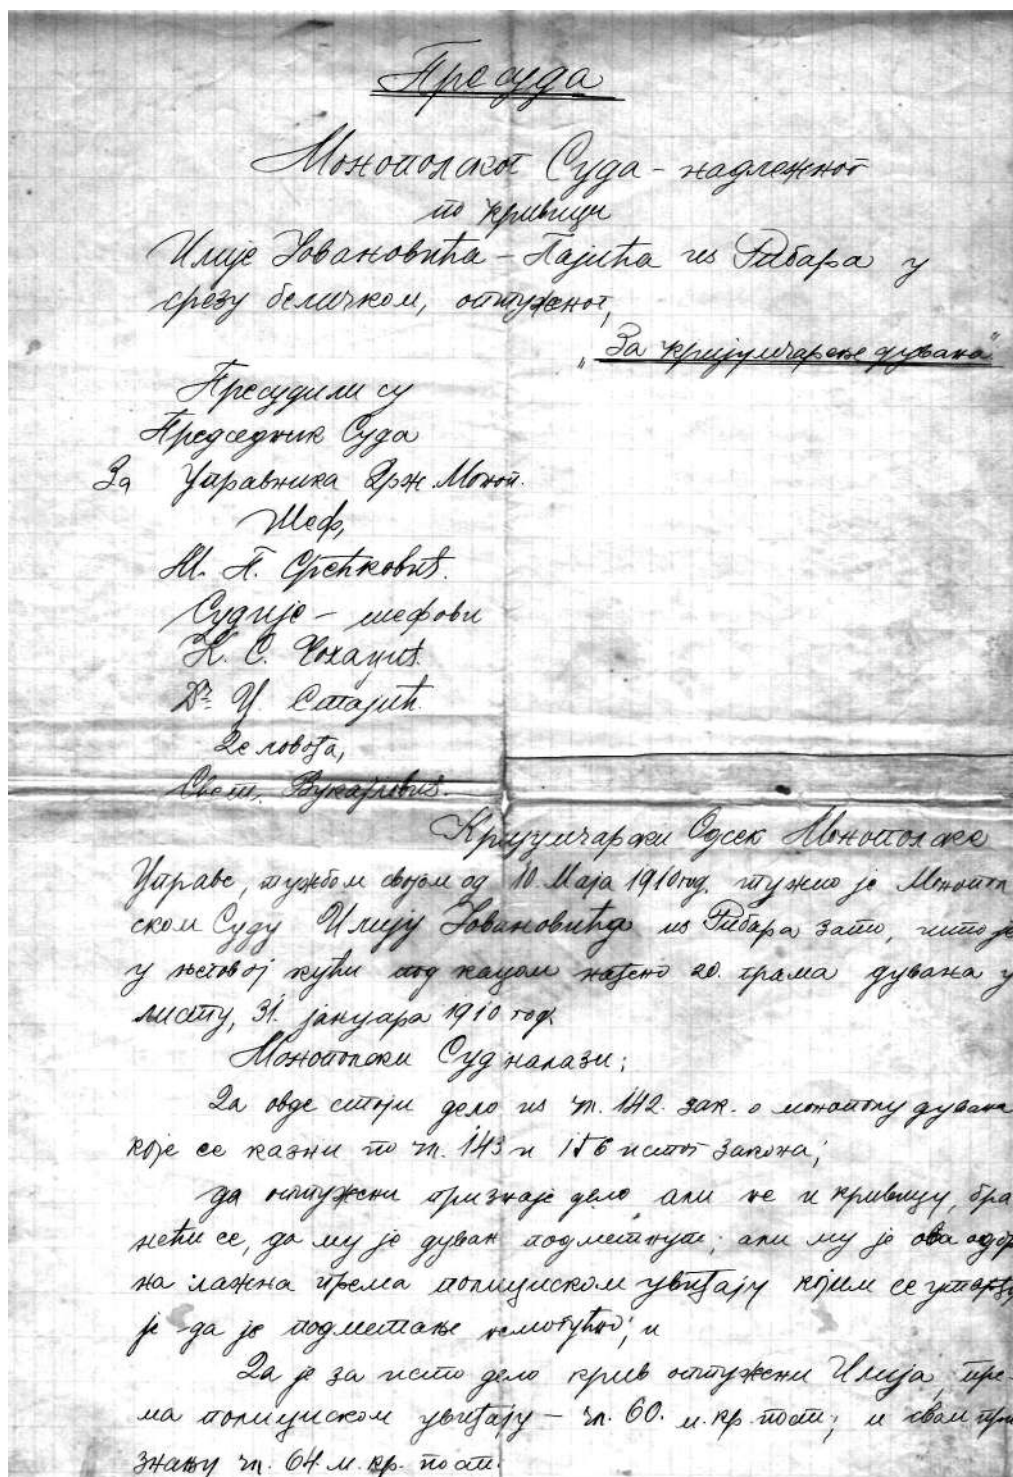 Пресуда
Монополског Суда – надлежног
по кривици
Илије Јовановића – Пајића из Рибара у
срезу беличком, оптуженог,
„За кријумчарење дувана“
Пресудили су
Председник Суда
За Управника Држ. Моноп.
Шеф,
М. П. Срећковић.
Судије – шефови
К. С. Чохаџић.
Др. Ц. Стајић.
Деловођа,
Свет. Вукајловић.
Кријумчарски Одсек Монополске
Управе, тужбом својом од 10. Маја 1910 год. тужио је Монопол
ском Суду Илију Јовановића из Рибара зато, што је
у његовој кући под кацом нађено 20. грама дувана у
листу, 31. јануара 1910 год.
Монополски Суд налази;
Да овде стоји дело из чл. 142. зак. о монополу дувана
које се казни по чл. 143 и 156 истог закона;
да оптужени признаје дело али не и кривицу, бра
нећи се, да му је дуван подметнут; али му је ова одбра
на лажна према полициском увиђају којим се утврђу
је да је подметање немогућно; и
Да је за исто дело крив оптужени Илија, пре-
ма полициском увиђају – чл. 60. м. кр. пост; и свом при
знању чл. 64. м. кр. пост.